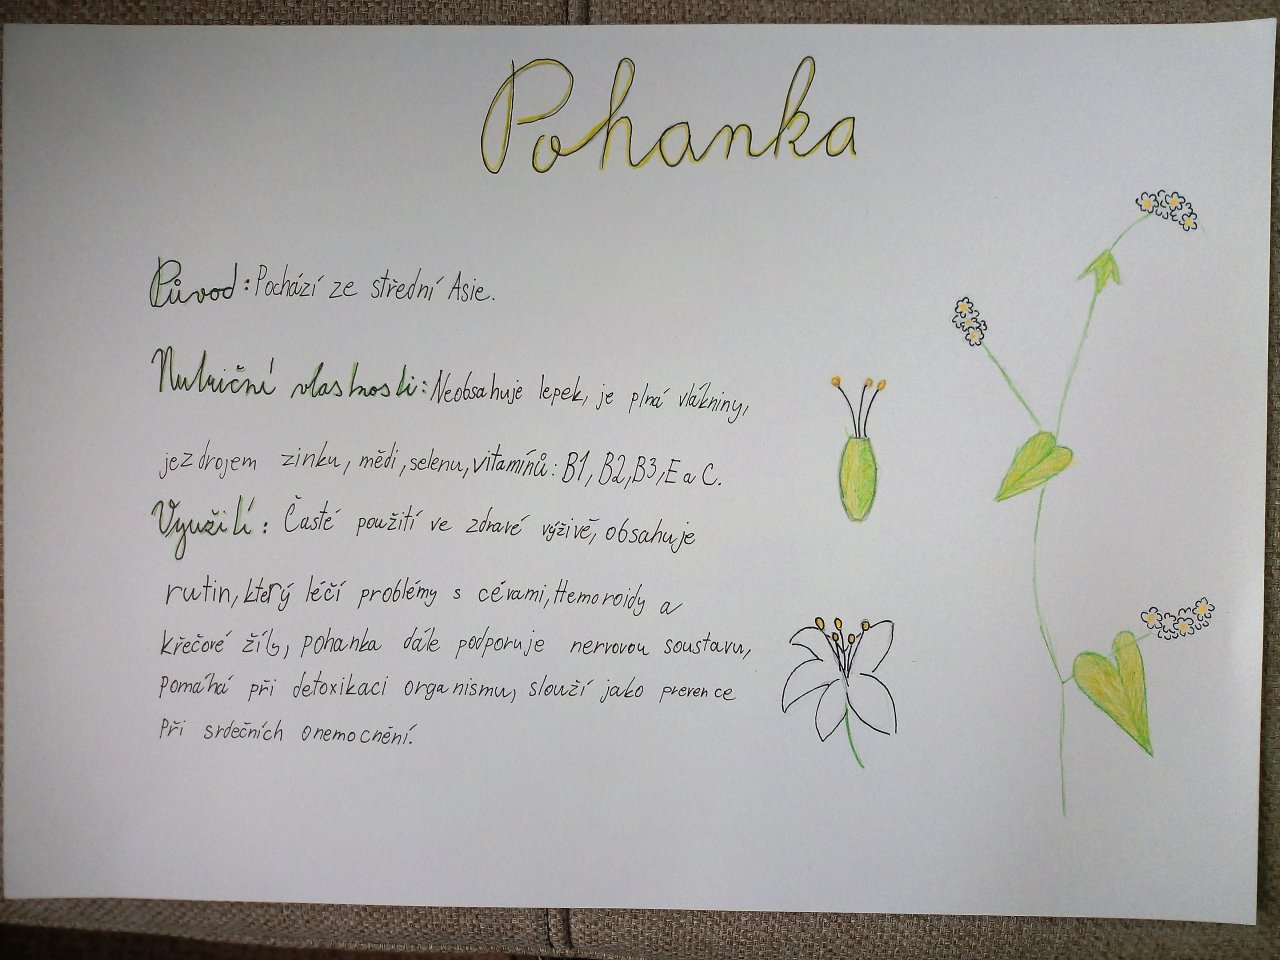 Pohanka
Původ: Pochází ze střední Asie.
Nutriční vlastnosti: Neobsahuje lepek, je plná vlákniny,
je zdrojem zinku, mědi, selenu, vitamínů: B1, B2, B3, E a C.
Využití: Časté použití ve zdravé výživě, obsahuje
rutin, který léčí problémy s cévami, Hemoroidy a
křečové žíly, pohanka dále podporuje nervovou soustavu,
pomáhá při detoxikaci organismu, slouží jako prevence
při srdečních onemocnění.